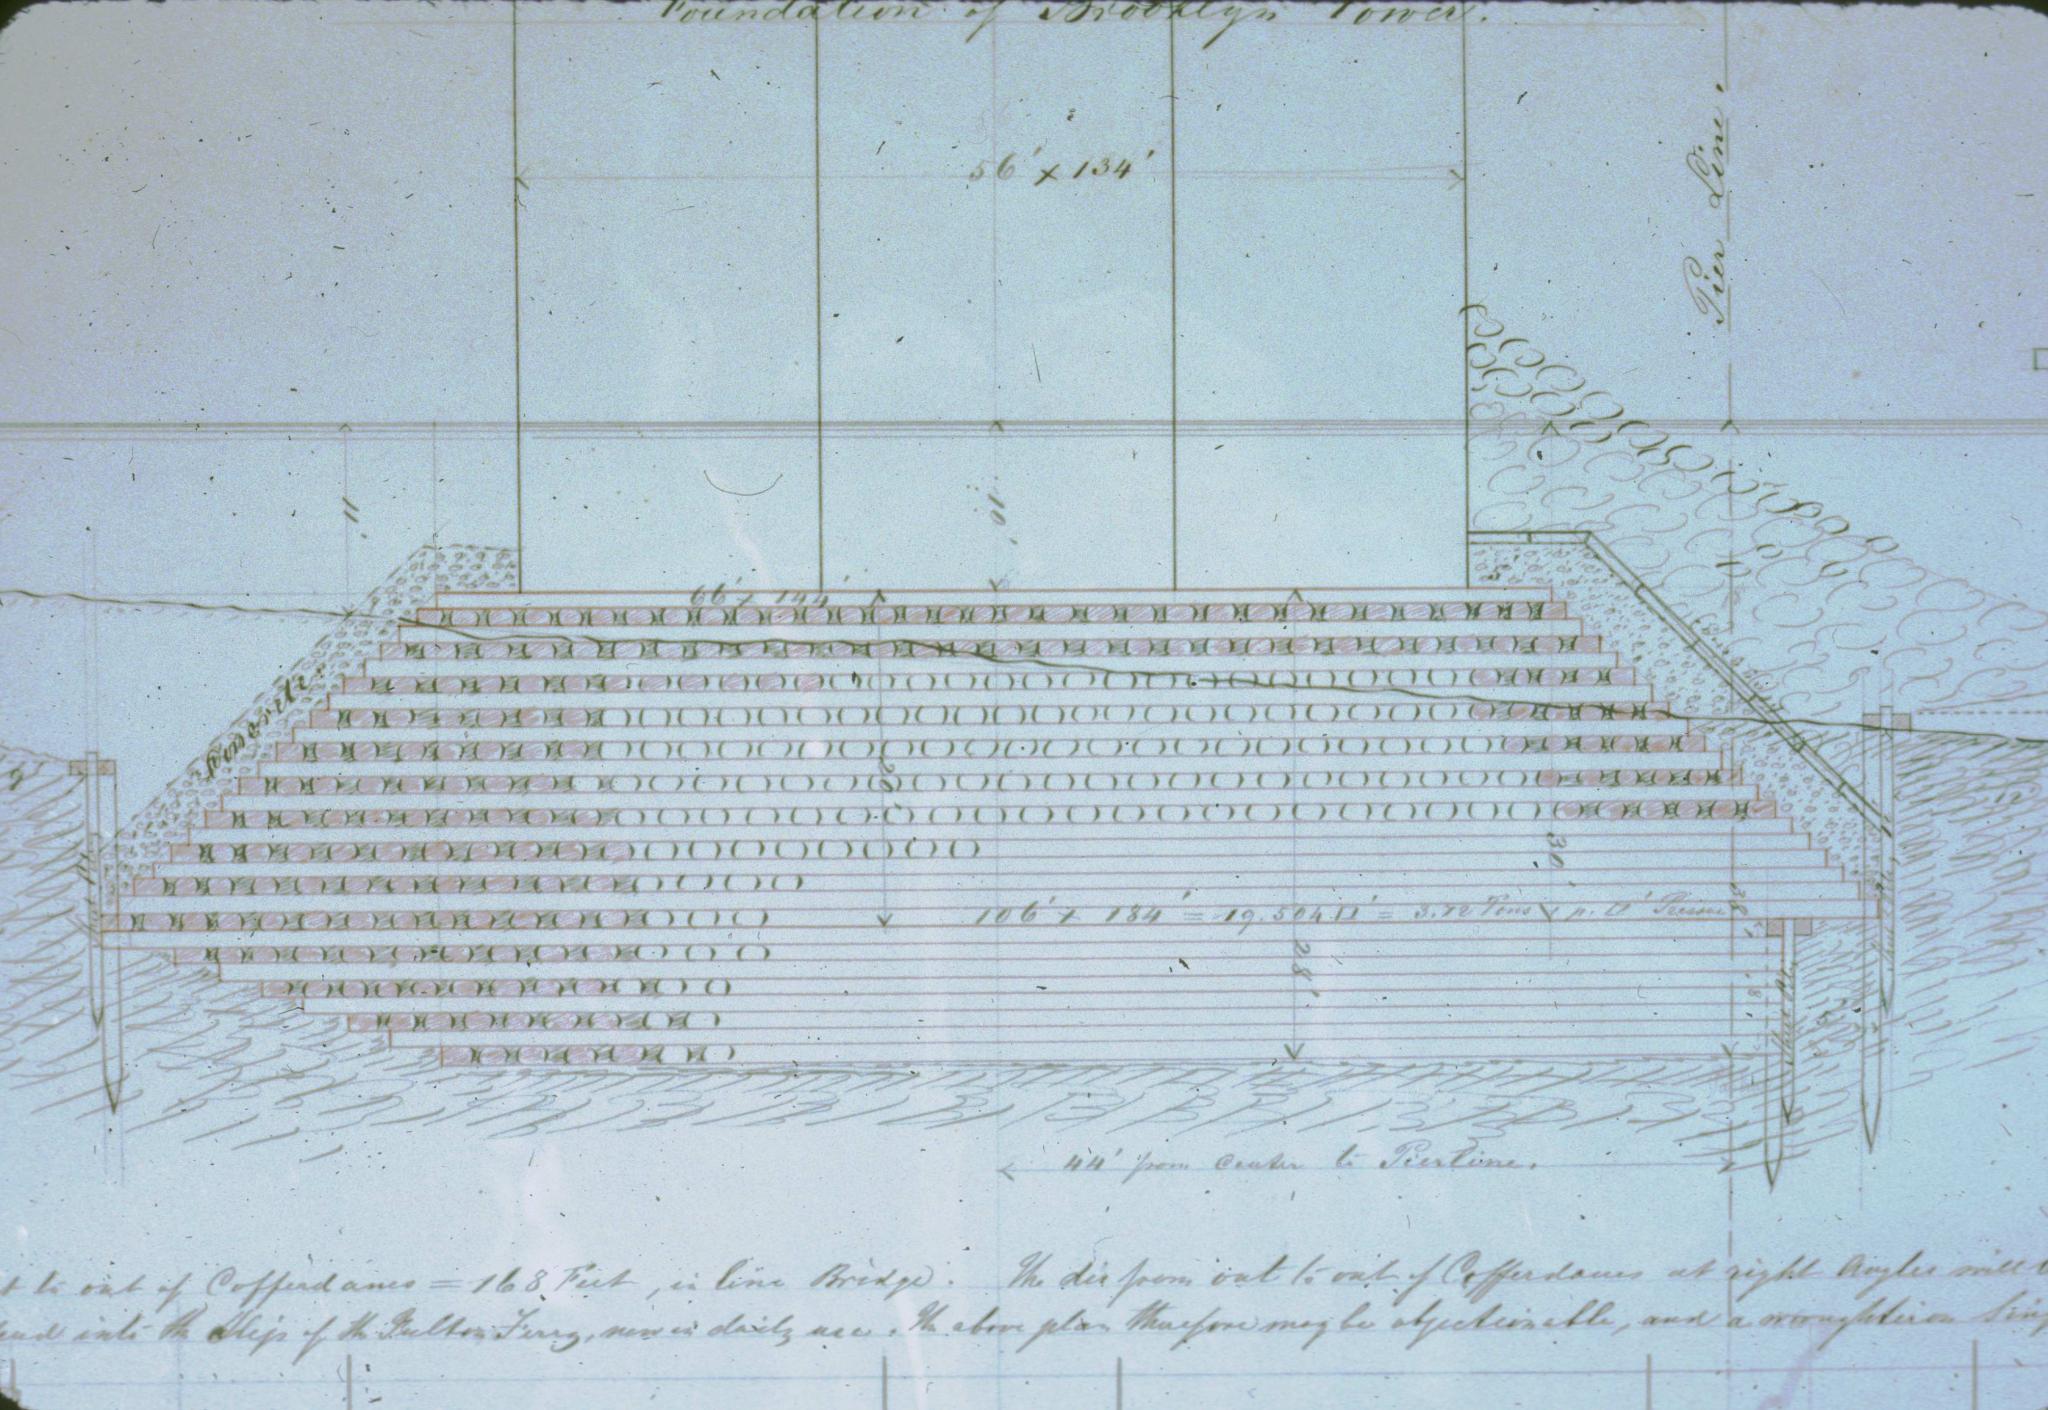 Foundation of Brooklyn Tower.
56' x 134'
Pier Line.
11'
10'
66' x 144'
Concrete
9'
20'
30'
106' x 184' = 19.504 □' = 3.72 Tons p. □'
28'
8'
44' from center to Pierline.
t to out of Cofferdams = 168 Feet, in line Bridge. The dis from out to out of Cofferdams at right Angles will
into the Slip of the Fulton Ferry, now in daily use. The above plan therefore may be objectionable, and a wroughtiron